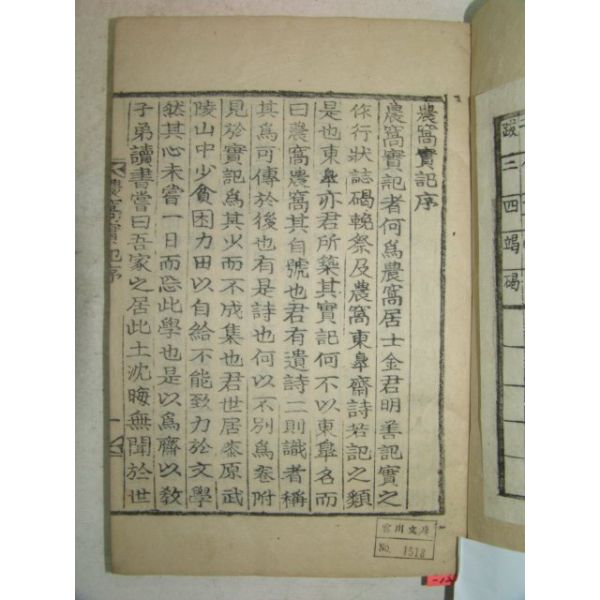 農窩實記序
農窩實記者何爲農窩居士金君明善記實之
作行狀誌碣輓祭及農窩東皐齋詩若記之類
是也東皐亦君所築其實記何不以東皐名而
曰農窩農窩其自號也君有遺詩二則識者稱
其爲可傳於後也有是詩也何以不別爲卷附
見於實記爲其少而不成集也君世居泰原武
陵山中少貧困力田以自給不能致力於文學
然其心未嘗一日而忘此學也是以爲齋以教
子弟讀書嘗曰吾家之居此土沈晦無聞於世
農窩實記序
一
跋二四碣碣
No. 1518